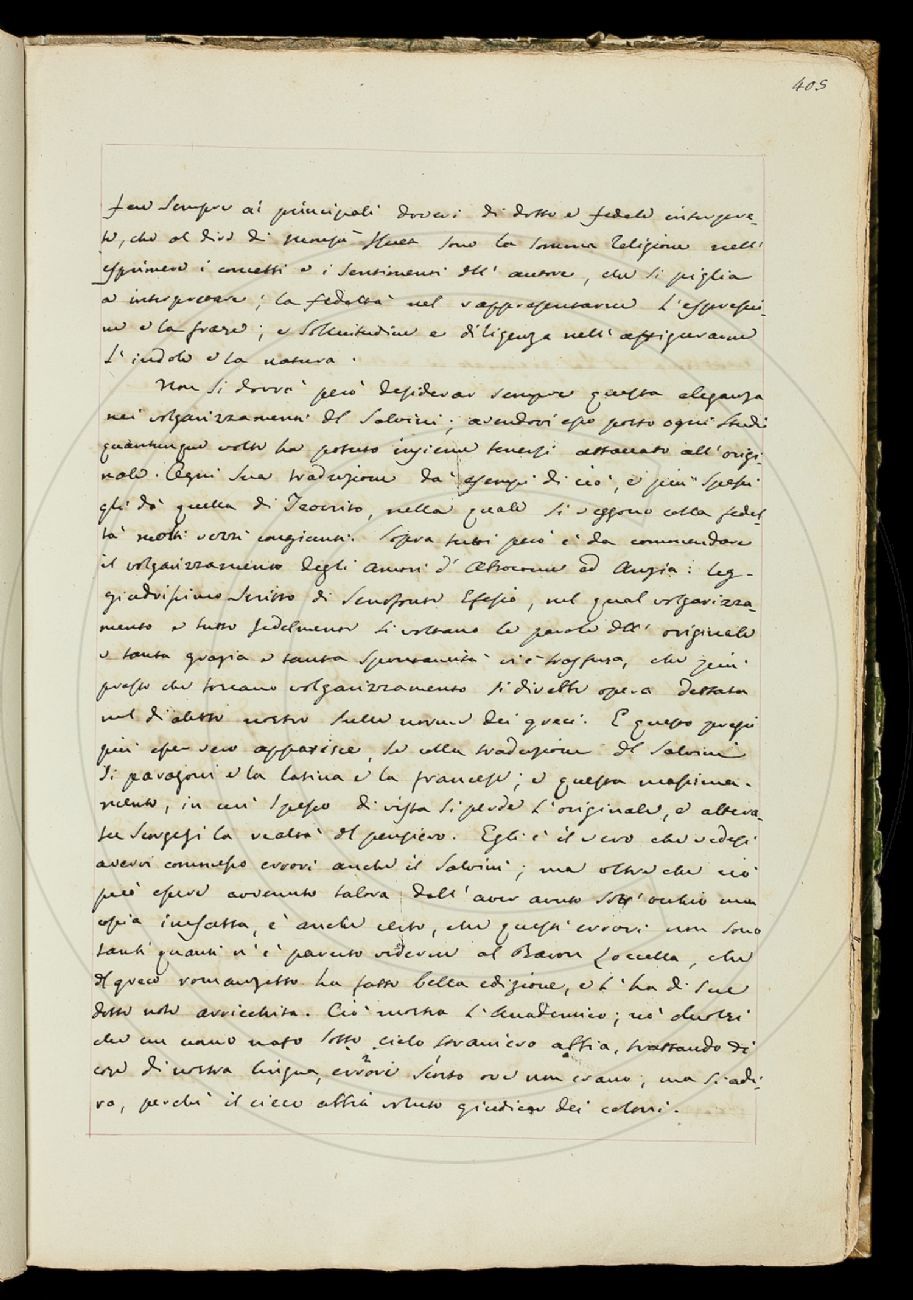 405
fece sempre ai principali doveri di dotto e fedele interpre-
te, che al dire di Monsig.r Huet sono la somma religione nell'
esprimere i concetti e i sentimenti dell' autore, che si piglia
a interpretare; la fedeltà nel rappresentarne l'espressio-
ne e la frase; e sollecitudine e diligenza nell' affigurarne
l' indole e la natura.
Non si dovrà però desiderar sempre questa eleganza
nei volgarizzamenti del Salvini; avendovi esso posto ogni studio
quantunque volte ha potuto insieme tenersi attaccato all' origi-
nale. Ogni sua traduzione dà esempi di ciò, e più spessi
gli dà quella di Teocrito, nella quale si veggono colla fedel-
tà molti vezzi congiunti. Sopra tutti però è da commendare
il volgarizzamento degli Amori d' Abrocome ed Anzia: leg-
giadrissimo scritto di Senofonte Efesio, nel qual volgarizza-
mento e tutte fedelmente si voltano le parole dell' originale
e tanta grazia e tanta spontaneità vi è trasfusa, che più
presto che toscano volgarizzamento si direbbe opera dettata
nel dialetto nostro sulle norme dei greci. E questo pregio
più esser vero apparisce, se colla traduzione del Salvini
si paragoni e la latina e la francese; e questa massima-
mente, in cui spesso di vista si perde l' originale, e altera-
ta scorgesi la realtà del pensiero. Egli è il vero che vedesi
avervi commesso errori anche il Salvini; ma oltre che ciò
può essere avvenuto talora dall' aver avuto sott' occhio una
copia inesatta, è anche certo, che questi errori non sono
tanti quanti n' è paruto vederne al Baron Locella, che
del greco romanzetto ha fatto bella edizione, e l' ha di sue
dotte note arricchita. Ciò mostra l' Accademico; nè duolsi
che un uomo nato sotto cielo straniero abbia, trattando di
cose di nostra lingua, errori scorto ove non erano; ma si adi-
ra, perchè il cieco abbia voluto giudicar dei colori.